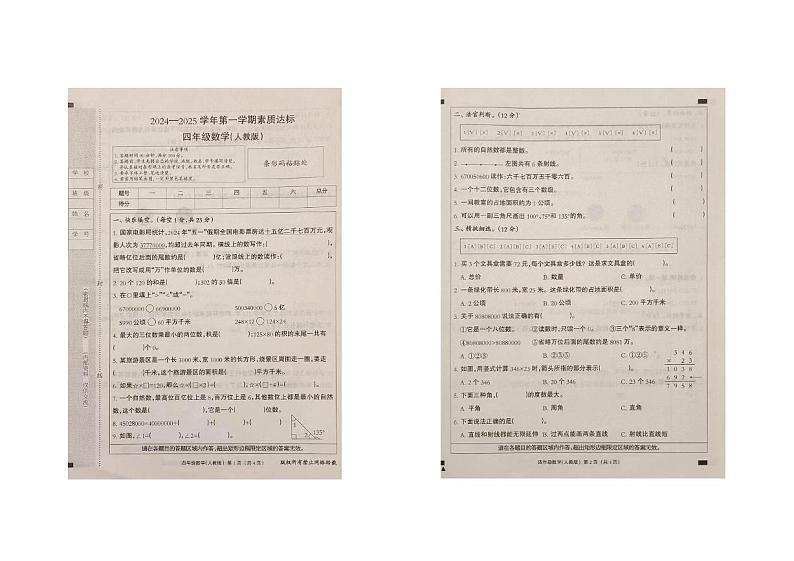 2024—2025 学年第一学期素质达标
四年级数学(人教版)
注意事项
条形码粘贴处
学校
班级
姓名
学号
密
封
线
题号 一 二 三 四 五 六 总分
得分
一、快乐填空。(每空1分,共23分)
1. 国家电影局统计,2024年“五一”假期全国电影票房达十五亿二千七百万元,观
影人次为37770000,均超过去年同期。横线上的数写作:( ),
省略亿位后面的尾数约是( )亿;波浪线上的数读作:( ),
把它改写成用“万”作单位的数是( )万。
2. 20个120的和是( );1302的30倍是( )。
3. 在○里填上“>”“<”或“=”。
67000000○66900000 500340000○5亿
5990公顷○60平方千米 248×12○124×24
4. 最大的三位数乘最小的两位数,积是( );125×80的积的末尾一共有
( )个0。
5. 某旅游景区是一个长3000米,宽1000米的长方形,绕景区周围走一圈,要走
( )千米,这个旅游景区的面积是( )平方千米。
6. 如果☆×□=120,那么☆×(□×3)=( ),(☆×□)÷4=( )。
7. 一个自然数,最高位百亿位上是8,百万位上是6,其他数位上都是最小的自然
数,这个数是( ),它是一个( )位数。
8. 45028000=40000000+( )+( )+( )
9. 如图,∠1=( ),∠2=( )。
1
2
135°
请在各题目的答题区域内作答,超出矩形边框限定区域的答案无效。
四年级数学(人教版) 第1页(共4页) 版权所有禁止网络转载
二、法官判断。(12分)
1[√][×] 2[√][×] 3[√][×] 4[√][×] 5[√][×] 6[√][×]
1. 所有的自然数都是整数。( )
2. 左图共有6条射线。( )
3. 670050600读作:六千七百万五千零六百。( )
4. 一个十二位数,它包含有三个数级。( )
5. 一间教室的占地面积约为1公顷。( )
6. 可以用一副三角尺画出100°,75°和135°的角。( )
三、精挑细选。(12分)
1[A][B][C] 2[A][B][C] 3[A][B][C] 4[A][B][C] 5[A][B][C] 6[A][B][C]
1. 买3个文具盒需要72元,每个文具盒多少钱?这是求文具盒的( )。
A. 总价 B. 数量 C. 单价
2. 一条绿化带长800米,宽25米。这条绿化带的占地面积是( )。
A. 2公顷 B. 20公顷 C. 200平方千米
3. 关于80808000说法正确的有( )。
①它是一个八位数。 ②读数时,只读一个0。 ③三个“8”表示的意义一样。
④80808000>8088000 ⑤省略万位后面的尾数约是8081万。
A. ①②⑤ B. ①②④ C. ①④⑤
4. 如图,用竖式计算346×23时,箭头所指的部分表示( )。
A. 2个346 B. 20个346 C. 23个346
3 4 6
× 2 3
1 0 3 8
6 9 2
7 9 5 8
5. 下面三种角,( )的度数最大。
A. 平角 B. 周角 C. 直角
6. 下面说法正确的是( )。
A. 直线和射线都能无限延伸 B. 过两点能画两条直线 C. 射线比直线短
请在各题目的答题区域内作答,超出矩形边框限定区域的答案无效。
四年级数学(人教版) 第2页(共4页)